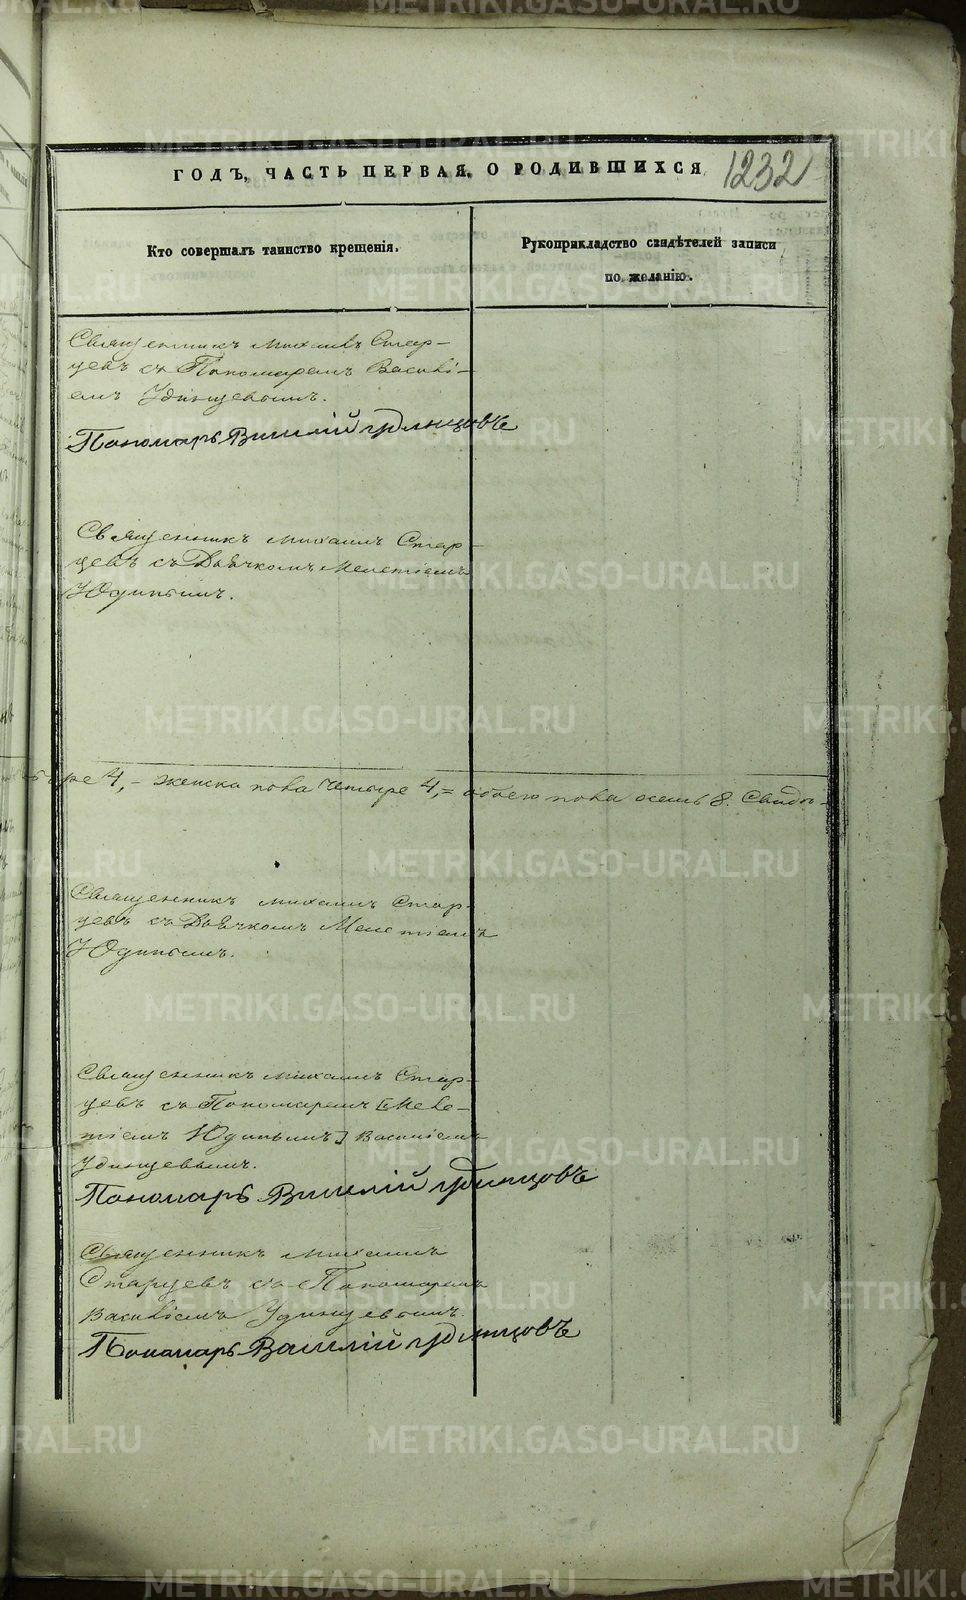 ГОДЪ, ЧАСТЬ ПЕРВАЯ, О РОДИВШИХСЯ 1232
Кто совершалъ таинство крещенія.
Рукоприкладство свидѣтелей записи
по желанію.
Священникъ Михаилъ Стар-
цевъ съ Пономаремъ Василі-
емъ Удинцевымъ.
Пономарь Василій Удинцовъ
Священникъ Михаилъ Стар-
цевъ съ Дьячкомъ Мелетіемъ
Юдинымъ.
ыре 4, – женска пола четыре 4, = обоего пола осемь 8. Свидѣ-
Священникъ Михаилъ Стар-
цевъ съ Дьячкомъ Мелетіемъ
Юдинымъ.
Священникъ Михаилъ Стар-
цевъ съ Пономаремъ [Меле-
тіемъ Юдинымъ] Василіемъ
Удинцевымъ.
Пономарь Василій Удинцовъ
Священникъ Михаилъ
Старцевъ съ Пономаремъ
Василіемъ Удинцевымъ.
Пономарь Василій Удинцовъ
METRIKI.GASO-URAL.RU